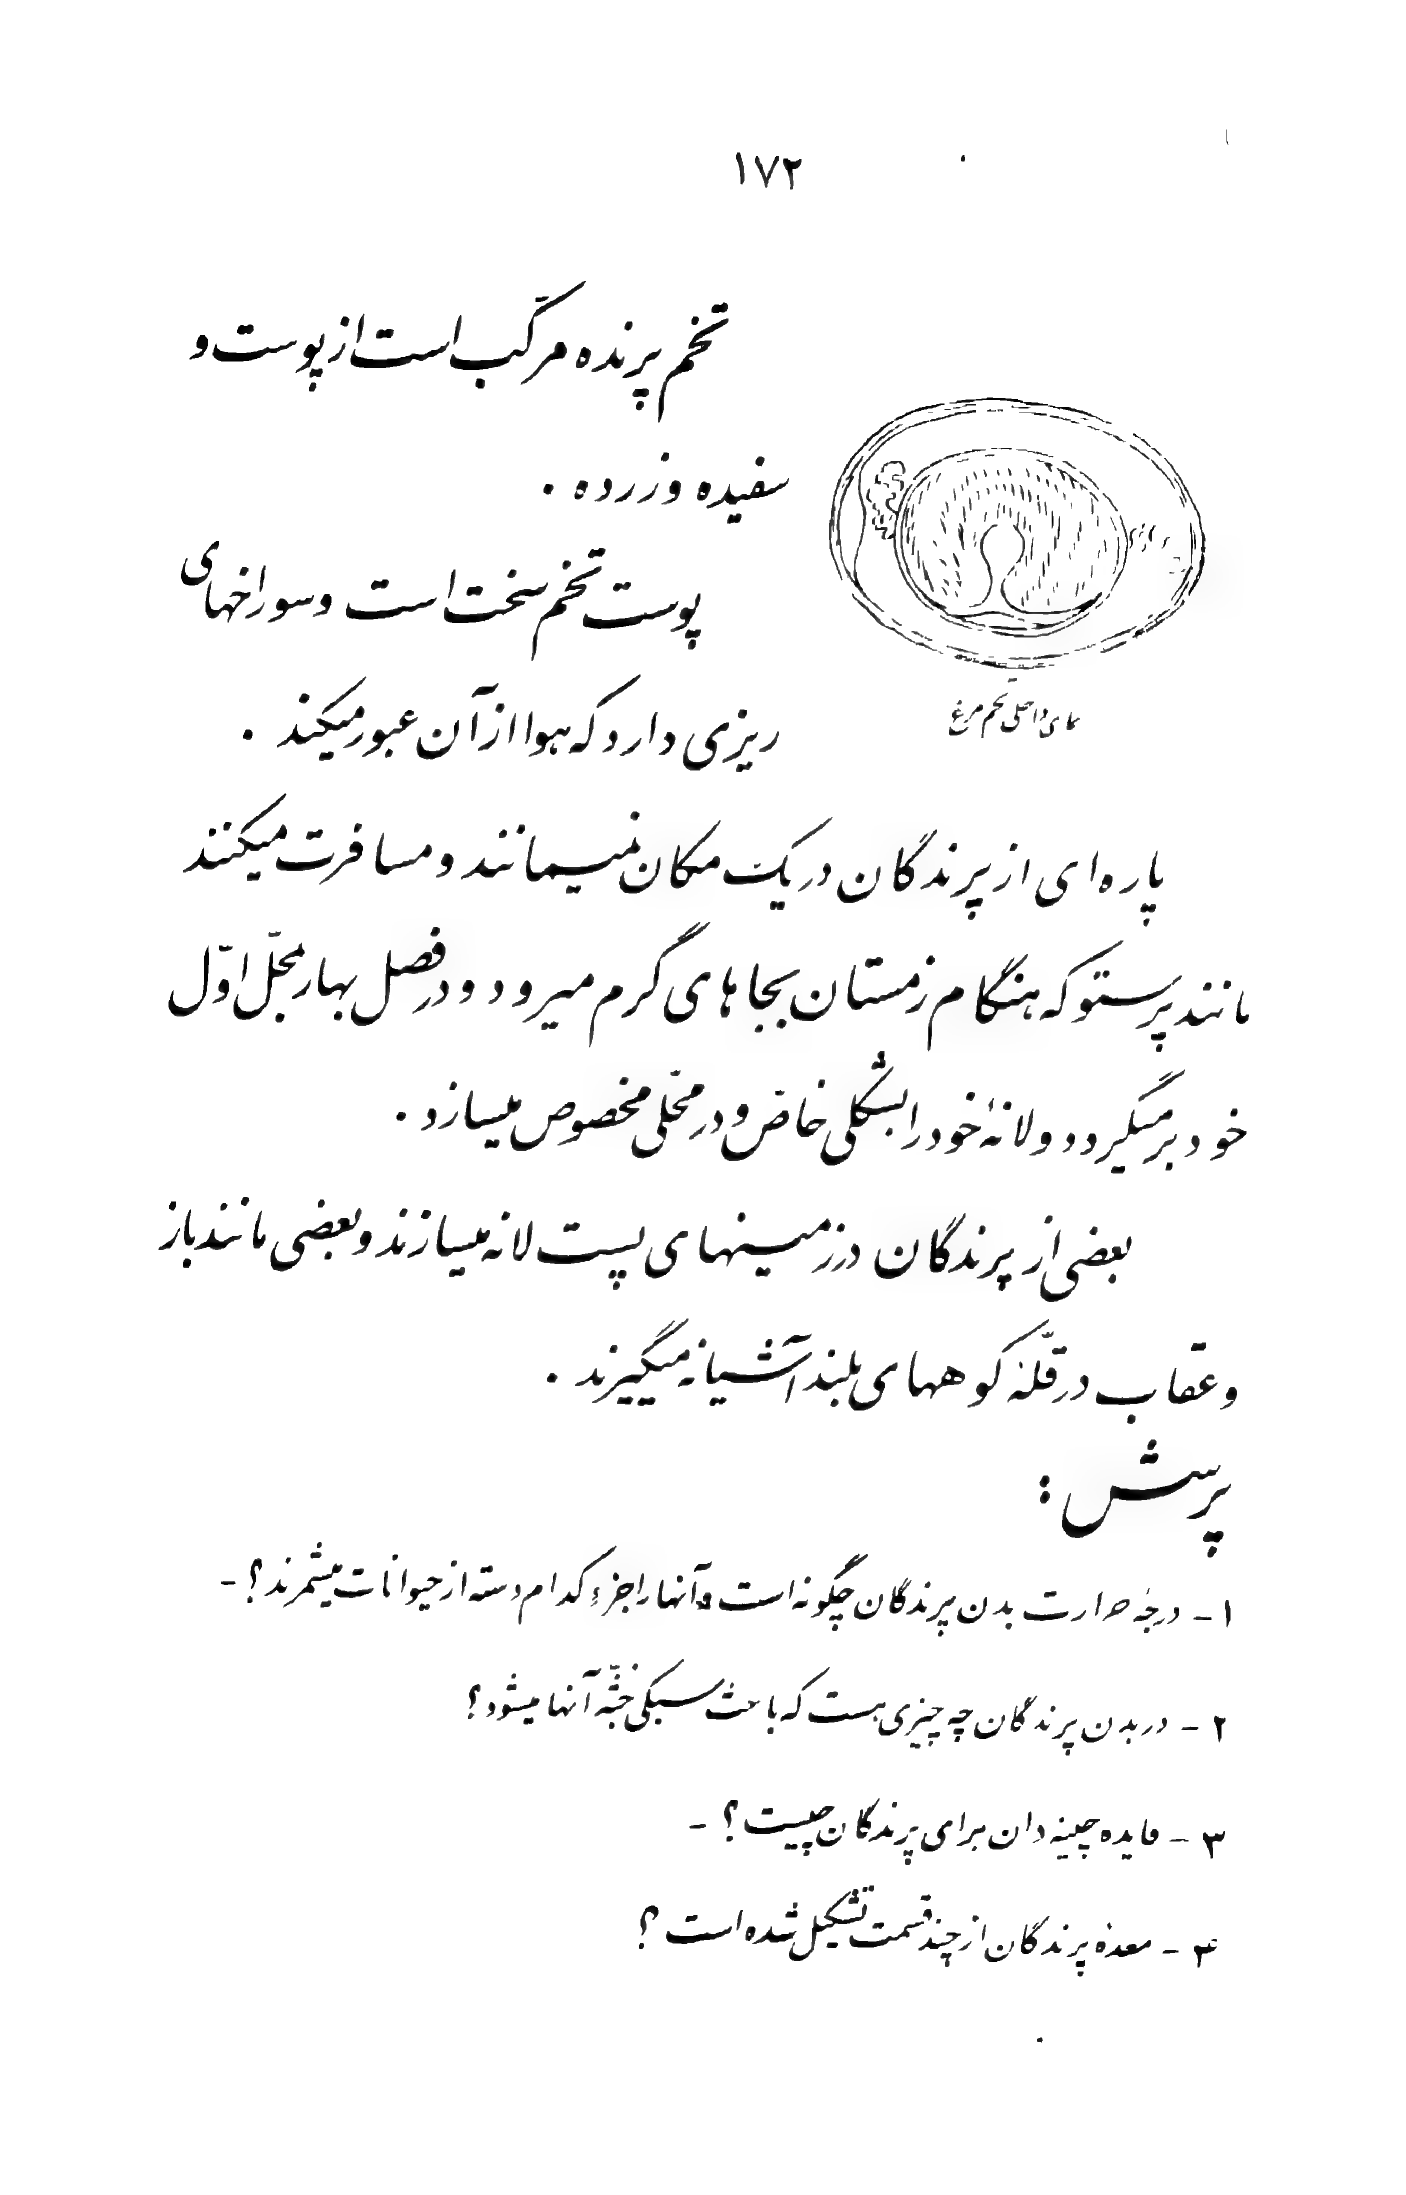 ۱۷۲
تخم پرنده مرکّب است از پوست و
سفیده و زرده .
پوست تخم سخت است و سوراخهای
ریزی دارد که هوا از آن عبور میکند .
نمای داخلی تخم مرغ
پاره‌ای از پرندگان در یک مکان نمیمانند و مسافرت میکنند
مانند پرستو که هنگام زمستان بجاهای گرم میرود و در فصل بهار بمحلّ اوّل
خود برمیگردد و لانهٔ خود را بشکلی خاصّ و در محّلی مخصوص میسازد .
بعضی از پرندگان در زمینهای پست لانه میسازند و بعضی مانند باز
و عقاب در قلّهٔ کوههای بلند آشیانه میگیرند .
پرسش :
۱ - درجهٔ حرارت بدن پرندگان چگونه است و آنها را جزء کدام دسته از حیوانات میشمرند ؟ -
۲ - در بدن پرندگان چه چیزی هست که باعث سبکی جثّهٔ آنها میشود ؟
۳ - فایده چینه دان برای پرندگان چیست ؟ -
۴ - معدهٔ پرندگان از چند قسمت تشکیل شده است ؟